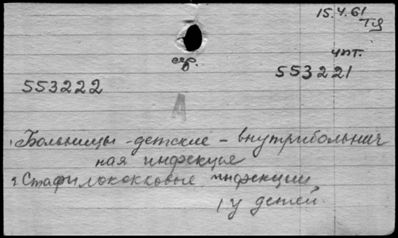 15.4.61
чит.
553222
553221
А
1 Больницы - детские - внутрибольнич
ная инфекция
2 Стафилококковые инфекции
1 у детей